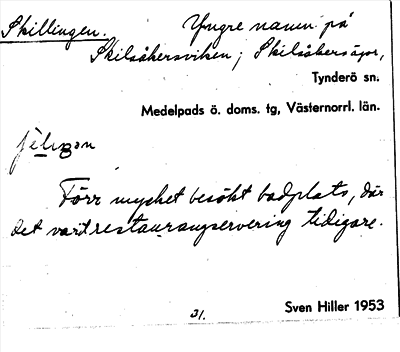 Skillingen. Yngre namn på
Skilsåkersviken; Skilsåkersågor,
Tynderö sn.
Medelpads ö. doms. tg, Västernorrl. län.
Förr mycket besökt badplats, där
det varit restaurangservering tidigare.
31. Sven Hiller 1953